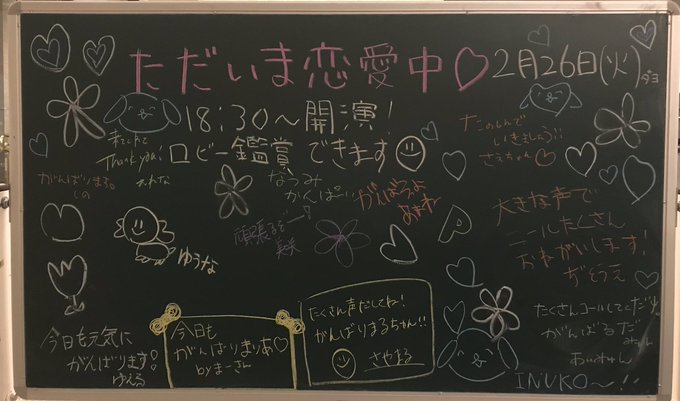 ただいま恋愛中♡
2月26日(火)
18:30～開演!
ロビー鑑賞できます
来てくれて
Thank you!
がんばりまる。
なつみ
かんぱい
がんばるよ
頑張るぞ
たのしんで
いきましょう!!
さえちゃん♡
大きな声で
コールたくさん
おねがいします!
ゆうな
今日も元気に
がんばります!
ゆえる
今日も
がんばりまりあ♡
byまーさん
たくさん声だしてね!
がんばりまるちゃん!!
さやまる
たくさんコールしてくださ
がんばるだ
みゅん
INUKO〜!!